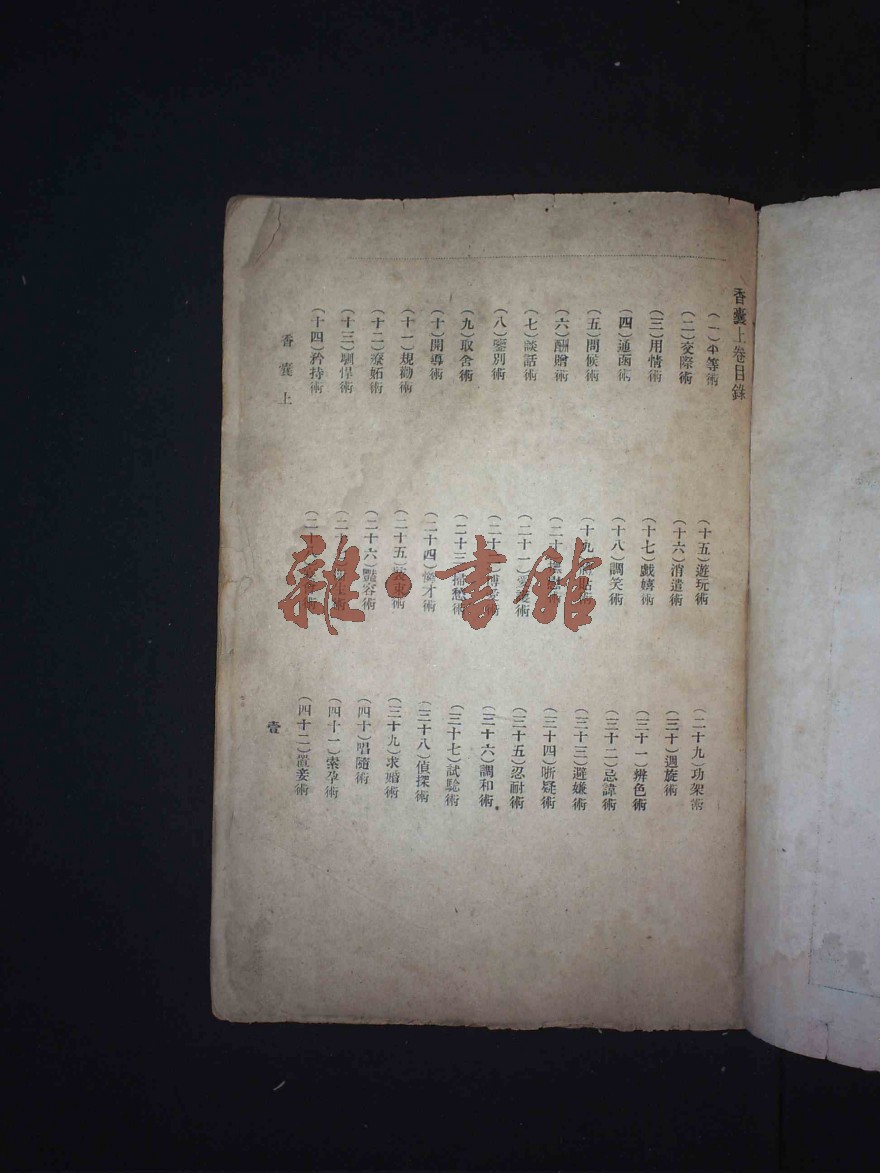 香囊上卷目錄
(一)平等術
(二)交際術
(三)用情術
(四)通函術
(五)問候術
(六)酬贈術
(七)談話術
(八)鑒別術
(九)取舍術
(十)開導術
(十一)規勸術
(十二)療妬術
(十三)馴悍術
(十四)矜持術
(十五)遊玩術
(十六)消遣術
(十七)戲嬉術
(十八)調笑術
(十九)術
(二十)術
(二十一)愛護術
(二十二)術
(二十三)愁術
(二十四)憐才術
(二十五)裝束術
(二十六)豔容術
術
術
(二十九)功架術
(三十)週旋術
(三十一)辨色術
(三十二)忌諱術
(三十三)避嫌術
(三十四)晰疑術
(三十五)忍耐術
(三十六)調和術
(三十七)試驗術
(三十八)偵探術
(三十九)求婚術
(四十)唱隨術
(四十一)索孕術
(四十二)置妾術
香囊上
壹
雜·書館